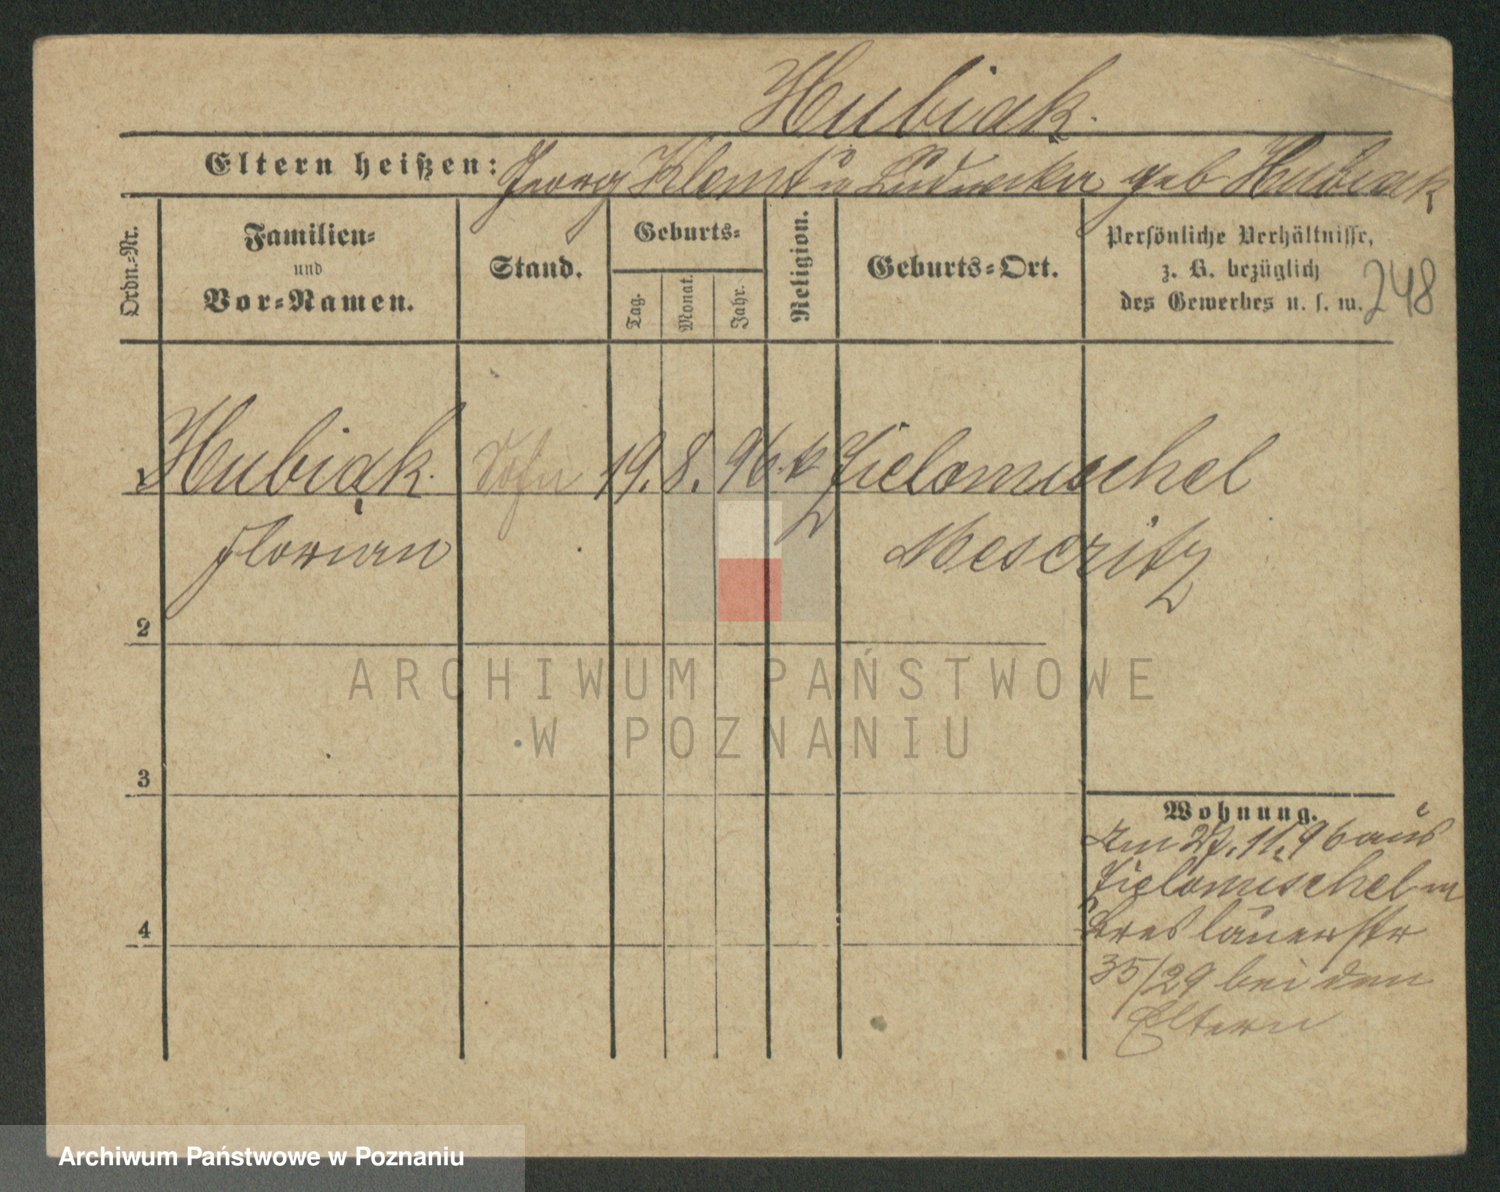 Hubiak.
Eltern heißen: Georg Klomt u Ludwika geb Hubiak
Ordn.-Nr.
Familien-
und
Vor-Namen.
Stand.
Geburts-
Tag.
Monat.
Jahr.
Religion.
Geburts-Ort.
Persönliche Verhältnisse,
z. B. bezüglich
des Gewerbes u. s. w.
248
1 Hubiak. Sohn 19. 8. 96. k Zielomischel
Florian Meseritz
2
3
4
Wohnung.
Am 27.11.96 aus
Zielomischel
Breslauerstr
35/29 bei den
Eltern
ARCHIWUM PAŃSTWOWE
W POZNANIU
Archiwum Państwowe w Poznaniu